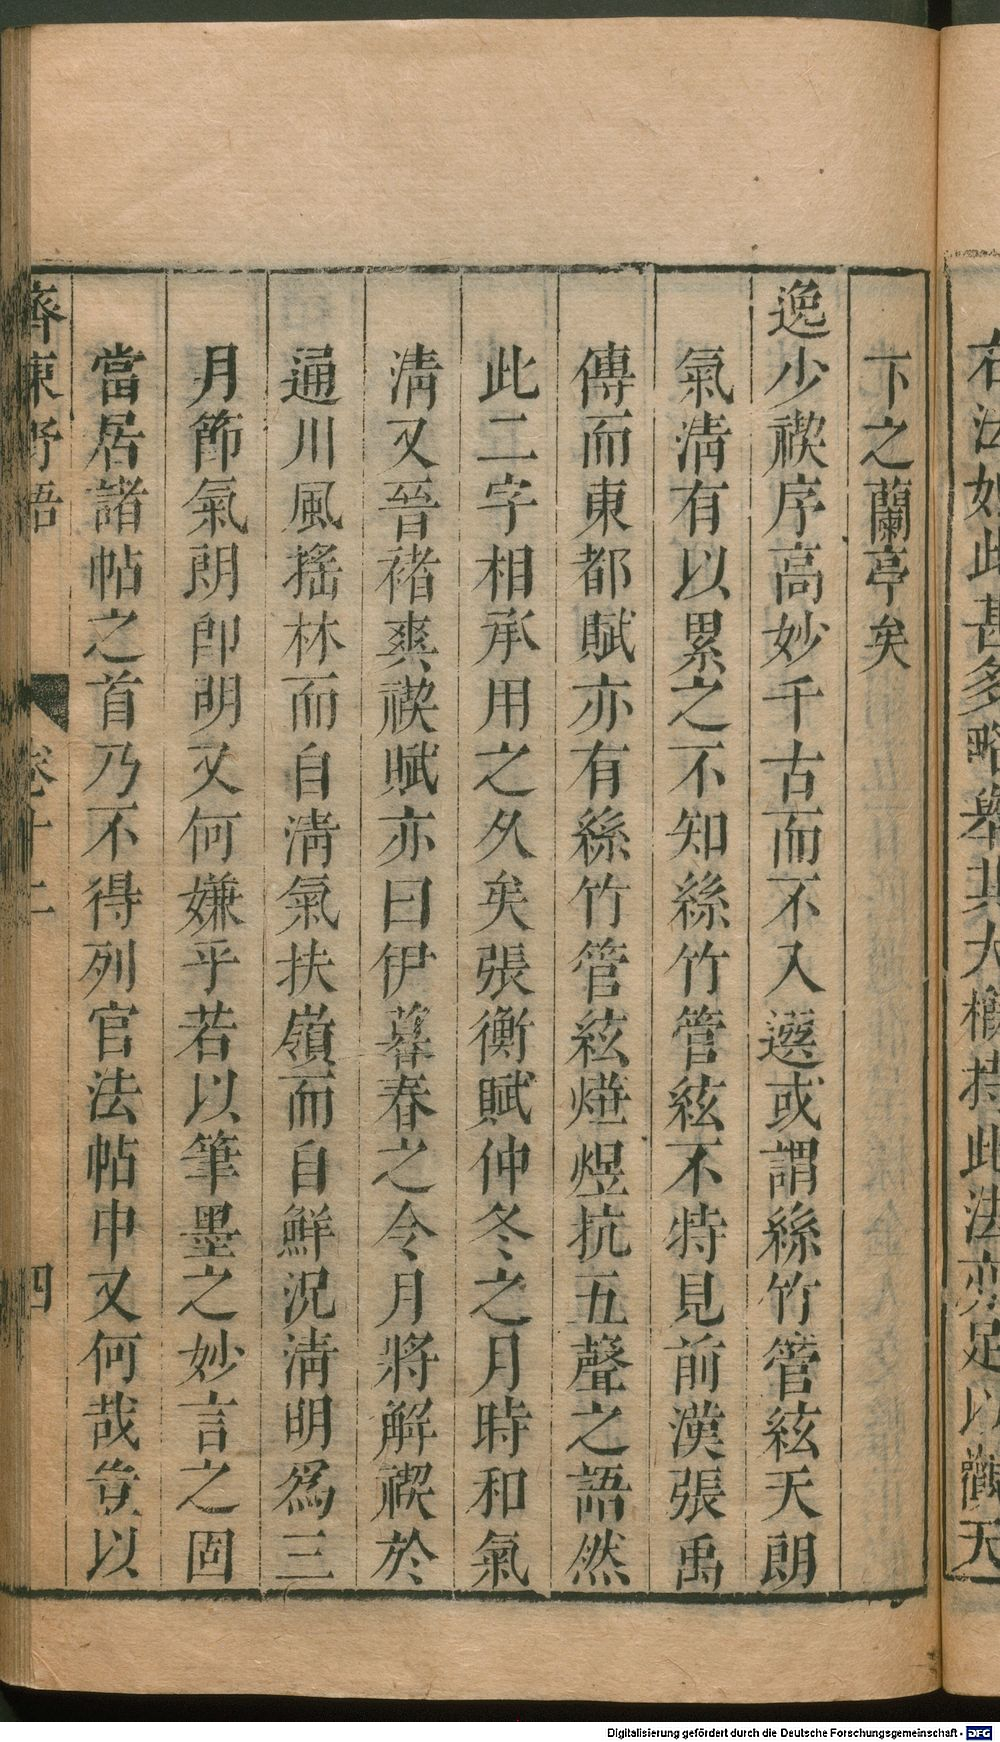 右法如此甚多略舉其大槩持此法亦足以觀天
下之蘭亭矣
逸少禊序高妙千古而不入選或謂絲竹管絃天朗
氣淸有以累之不知絲竹管絃不特見前漢張禹
傳而東都賦亦有絲竹管絃燁煜抗五聲之語然
此二字相承用之久矣張衡賦仲冬之月時和氣
淸又晉褚爽禊賦亦曰伊暮春之令月將解禊於
通川風搖林而自淸氣扶嶺而自鮮況淸明爲三
月節氣朗卽明又何嫌乎若以筆墨之妙言之固
當居諸帖之首乃不得列官法帖中又何哉豈以
齊東野語 卷十二 四
Digitalisierung gefördert durch die Deutsche Forschungsgemeinschaft - DFG